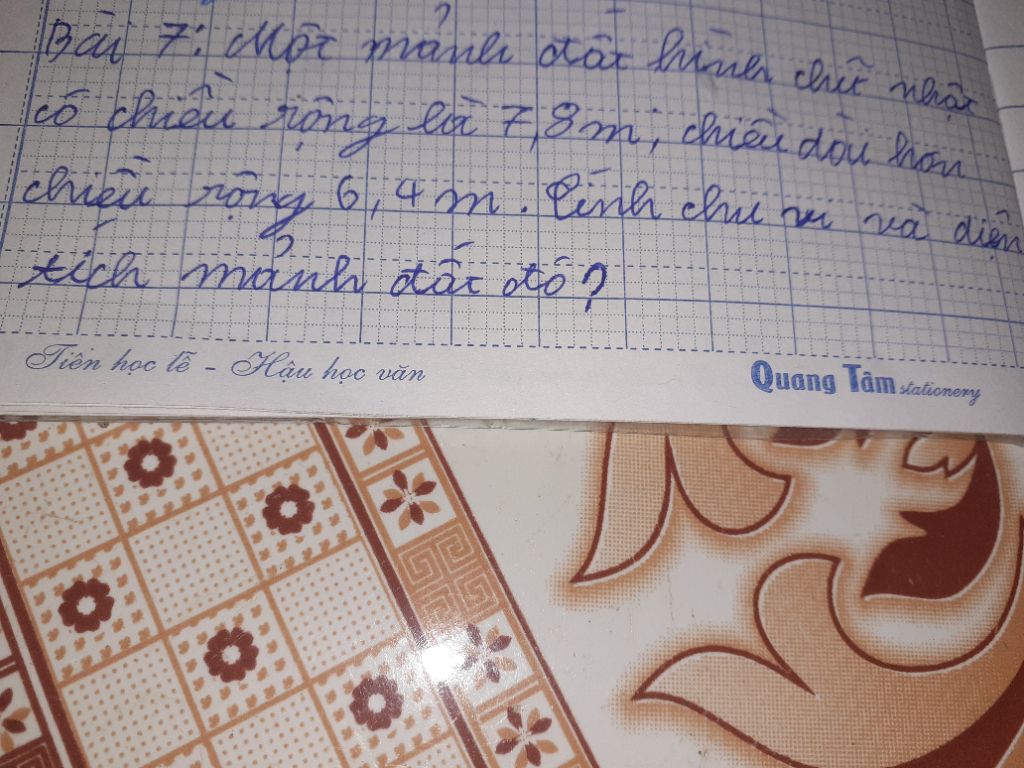 Bài 7: Một mảnh đất hình chữ nhật
có chiều rộng là 7,8m, chiều dài hơn
chiều rộng 6,4m. Tính chu vi và diện
tích mảnh đất đó?
Tiên học lễ - Hậu học văn
Quang Tâm stationery